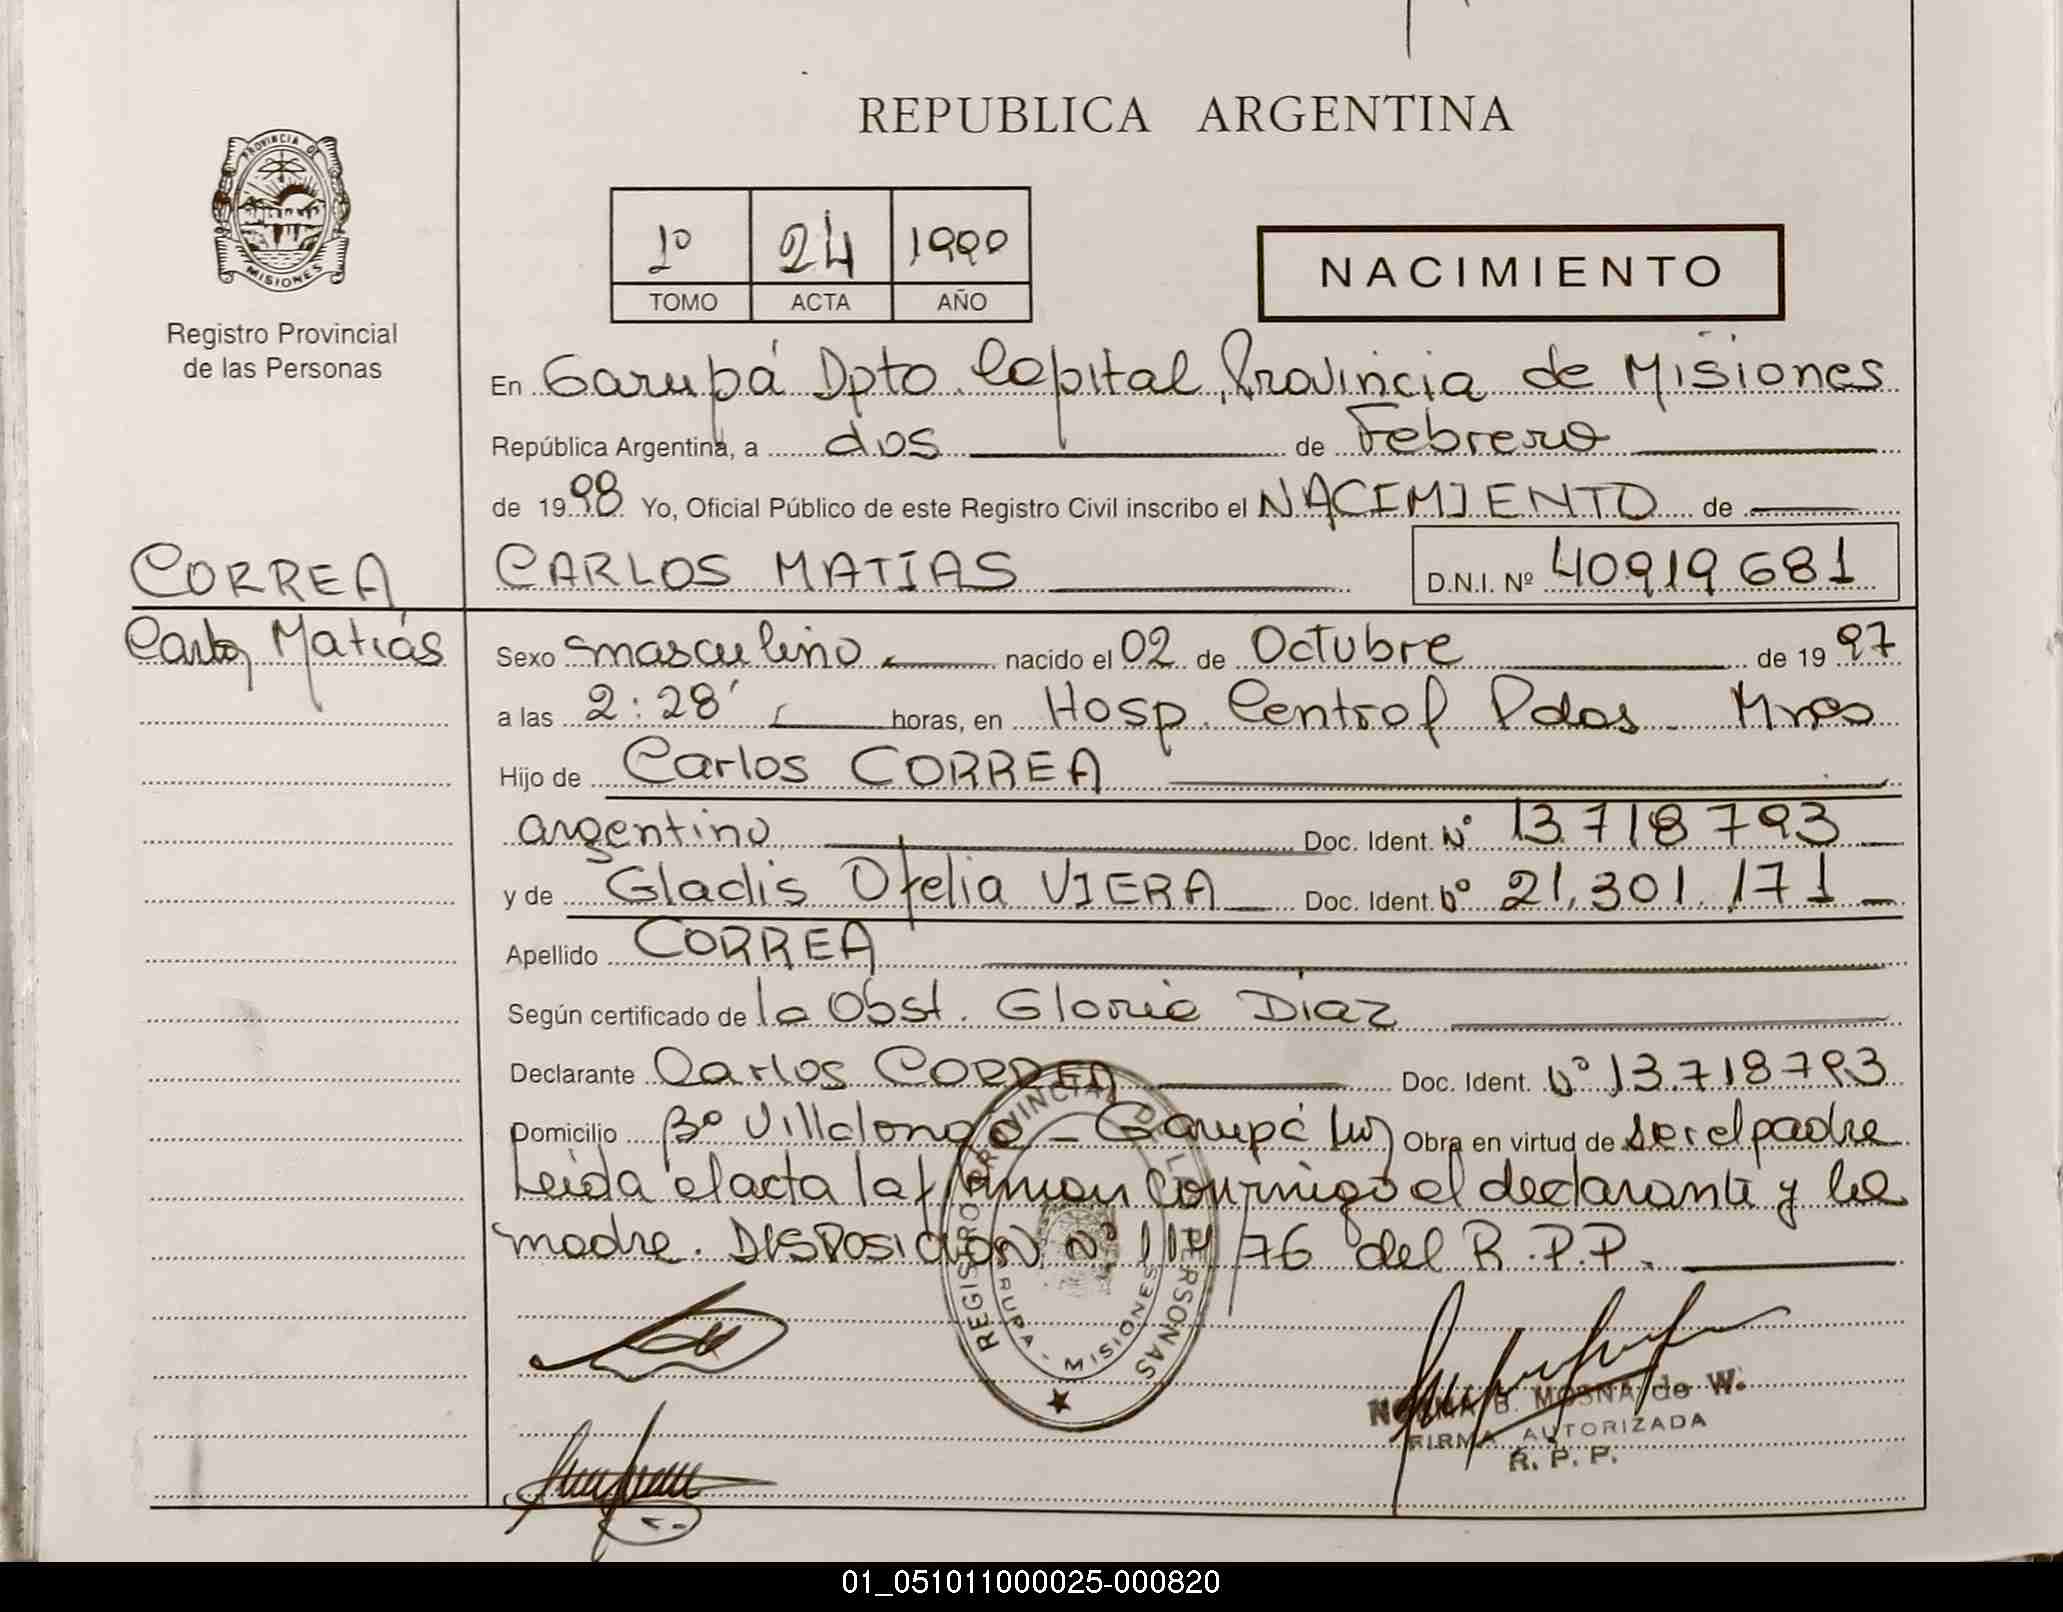 REPUBLICA ARGENTINA
PROVINCIA DE
MISIONES
Registro Provincial
de las Personas
1º 24
TOMO ACTA AÑO
NACIMIENTO
En Garupá Dpto. Capital, Provincia de Misiones
República Argentina, a dos de Febrero
de 1998 Yo, Oficial Público de este Registro Civil inscribo el NACIMIENTO de
CORREA
CARLOS MATIAS D.N.I. Nº 40919681
Carlos Matiás
Sexo masculino nacido el 02 de Octubre de 1997
a las 2:28' horas, en Hosp. Central Pdas Mnes
Hijo de Carlos CORREA
argentino Doc. Ident. Nº 13.718793
y de Gladis Ofelia VIERA Doc. Ident. Nº 21.301.171
Apellido CORREA
Según certificado de la Obst. Gloria Diaz
Declarante Carlos CORREA Doc. Ident. Nº 13.718793
Domicilio Bº Villalonga - Garupá Obra en virtud de ser el padre
Leida el acta la firman conmigo el declarante y la
madre. DISPOSICIÓN Nº 114/76 del R.P.P.
REGISTRO PROVINCIAL DE LAS PERSONAS
GARUPA - MISIONES
NORMA B. MOSNA de W.
FIRMA AUTORIZADA
R. P. P.
01_051011000025-000820